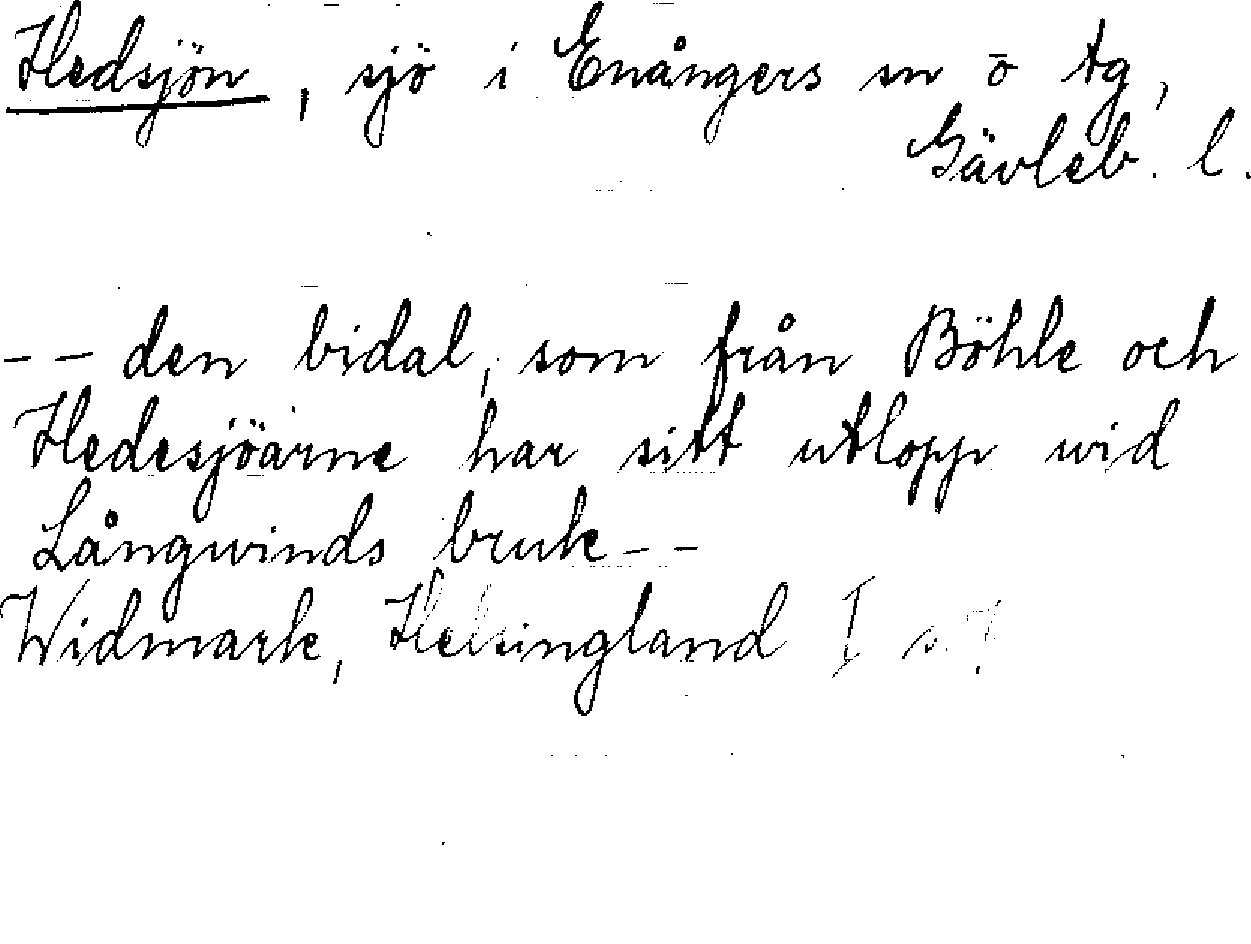 Hedsjön, sjö i Enångers sn o tg,
Gävleb. l.
-- den bidal, som från Böhle och
Hedesjöarne har sitt utlopp wid
Långwinds bruk --
Widmark, Helsingland I s.